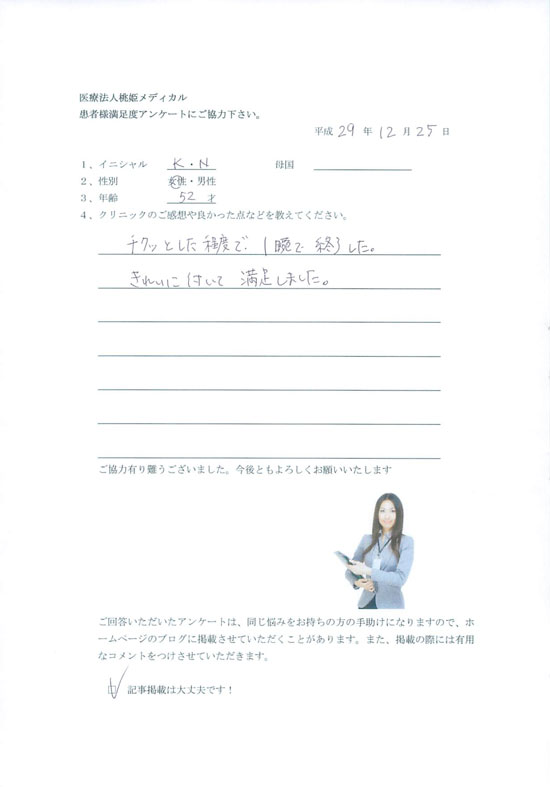 医療法人桃姫メディカル
患者様満足度アンケートにご協力下さい。
平成 29 年 12 月 25 日
1、イニシャル K・N 母国
2、性別 女性・男性
3、年齢 52 才
4、クリニックのご感想や良かった点などを教えてください。
チクッとした程度で、1瞬で終了した。
きれいに付いて 満足しました。
ご協力有り難うございました。今後ともよろしくお願いいたします
ご回答いただいたアンケートは、同じ悩みをお持ちの方の手助けになりますので、ホ
ームページのブログに掲載させていただくことがあります。また、掲載の際には有用
なコメントをつけさせていただきます。
記事掲載は大丈夫です！